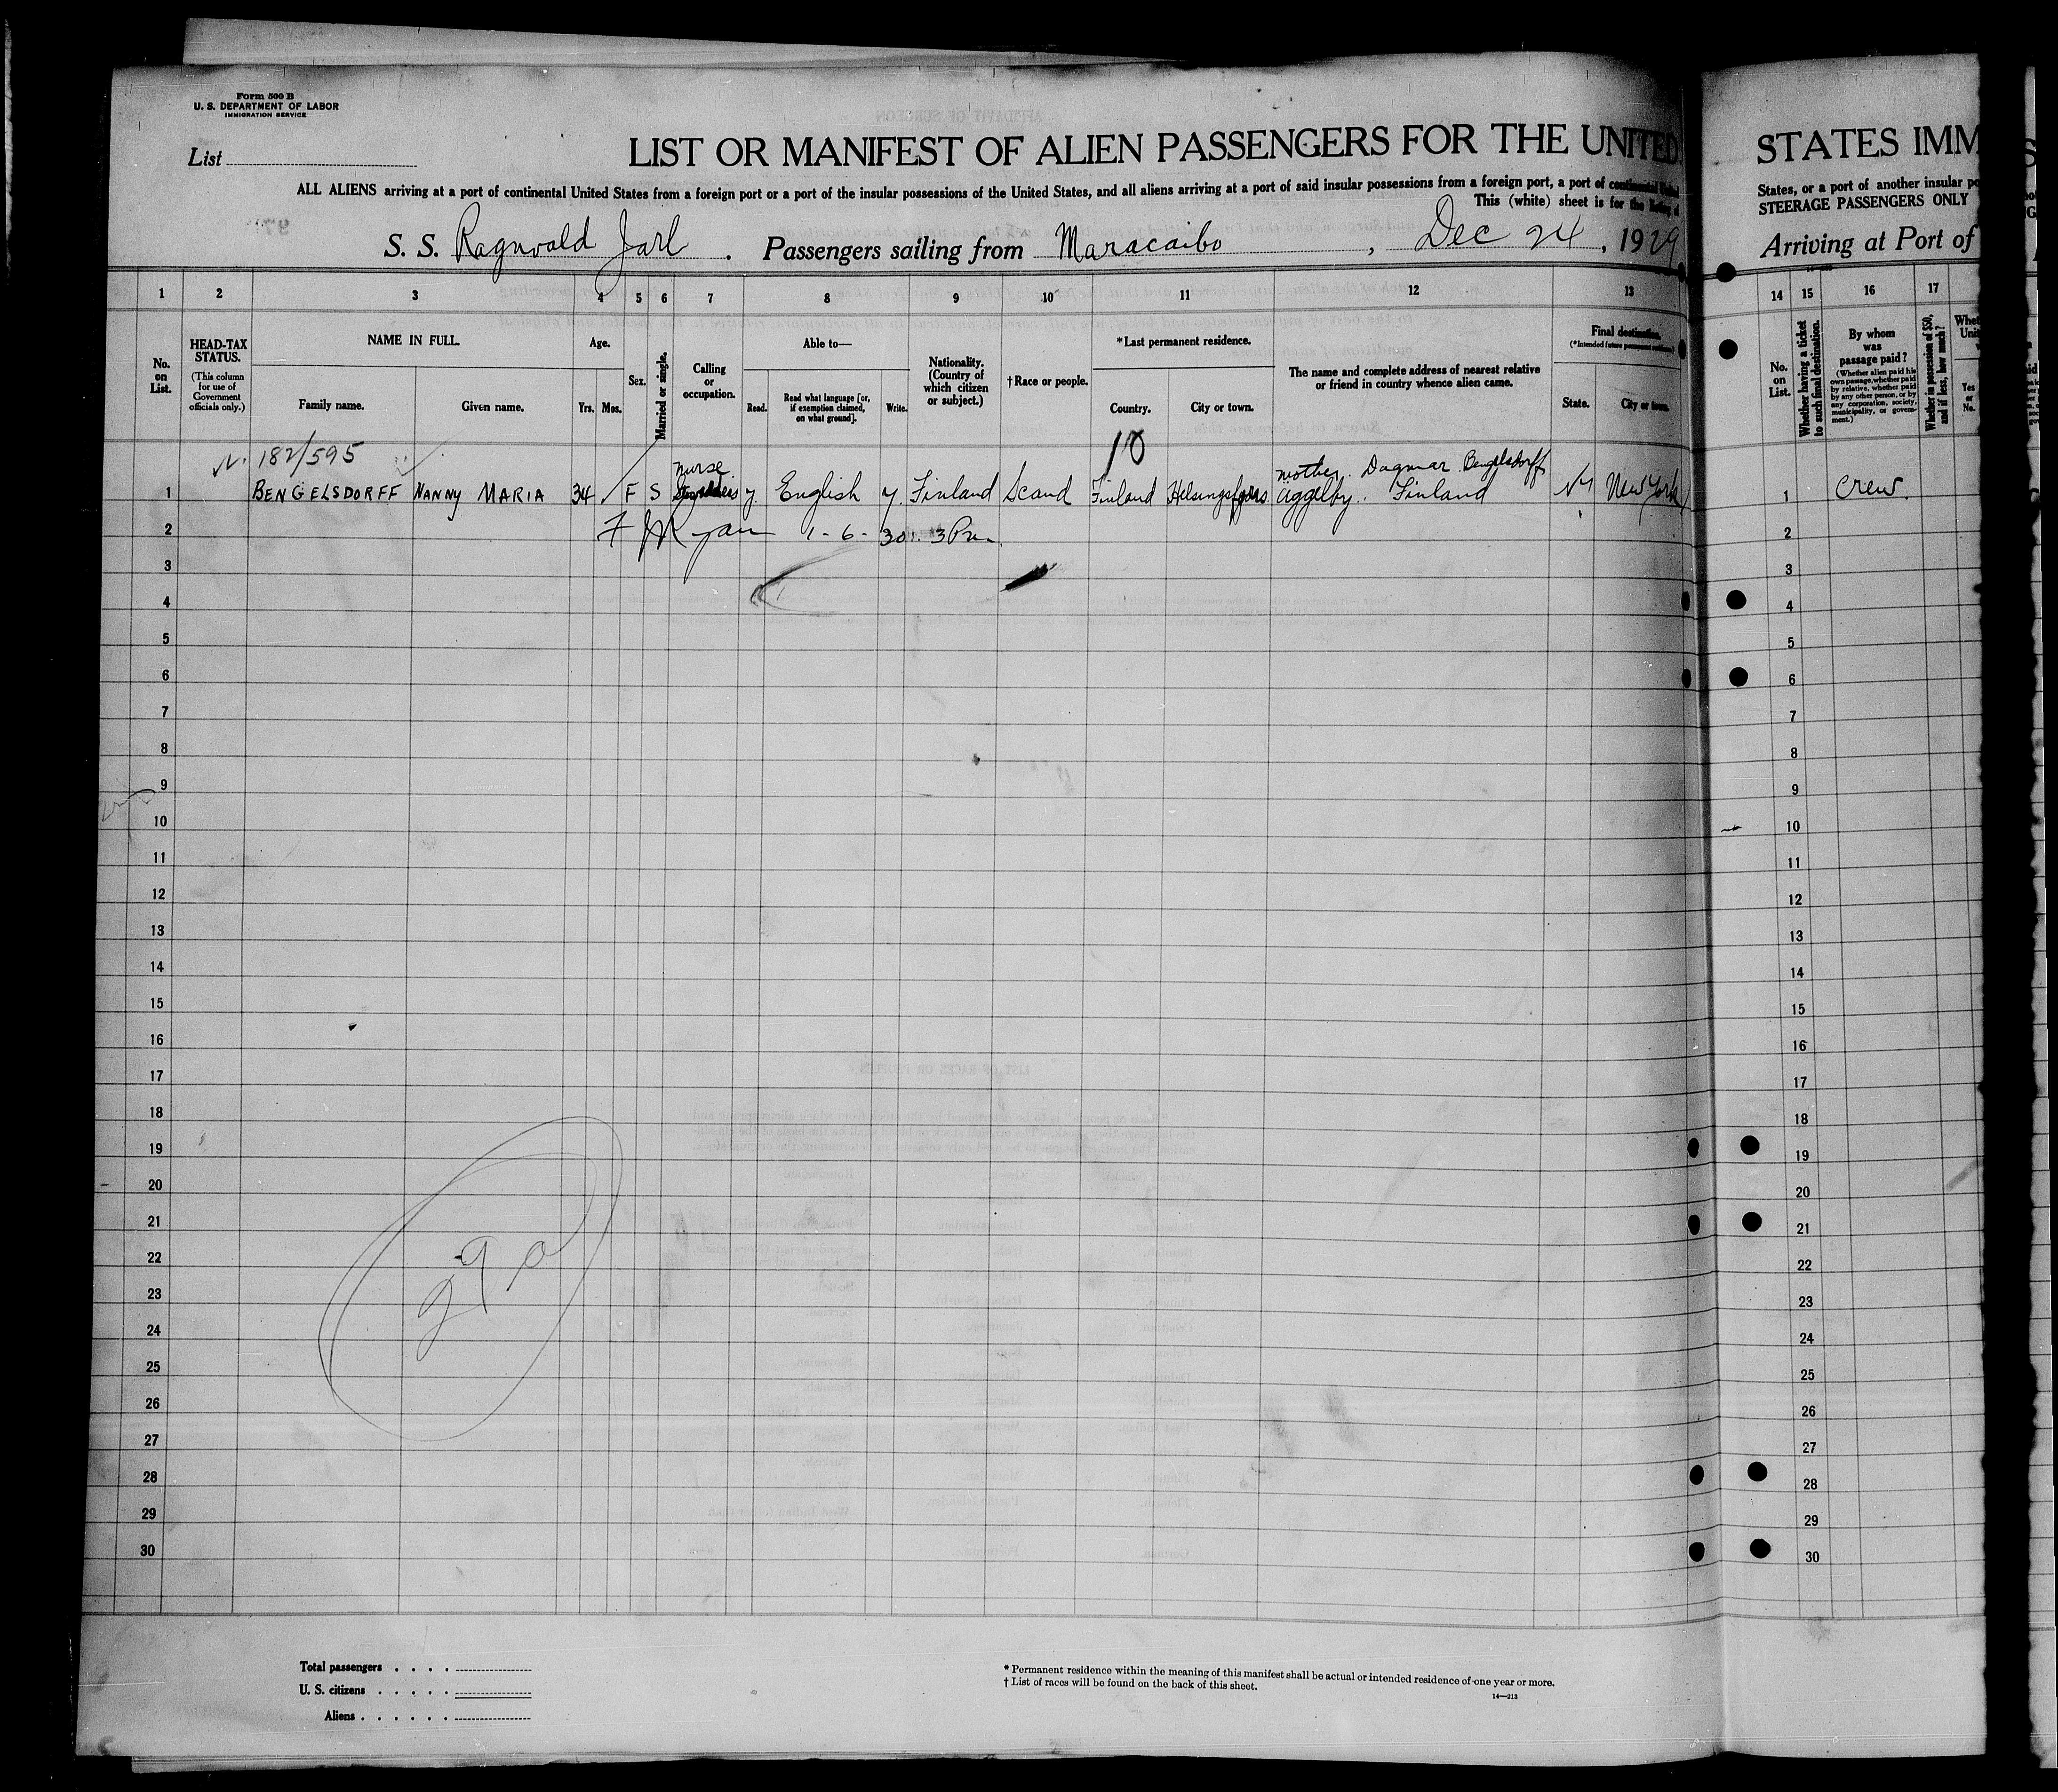 Form 500 B
U. S. DEPARTMENT OF LABOR
IMMIGRATION SERVICE
List
LIST OR MANIFEST OF ALIEN PASSENGERS FOR THE UNITED
ALL ALIENS arriving at a port of continental United States from a foreign port or a port of the insular possessions of the United States, and all aliens arriving at a port of said insular possessions from a foreign port, a port of continental United
This (white) sheet is for the listing of
S. S. Ragnvald Jarl . Passengers sailing from Maracaibo , Dec 24 , 1929
1 2 3 4 5 6 7 8 9 10 11 12 13
No. on List.
HEAD-TAX STATUS.
(This column for use of Government officials only.)
NAME IN FULL.
Family name. Given name.
Age.
Yrs. Mos.
Sex.
Married or single.
Calling or occupation.
Able to—
Read. Read what language [or, if exemption claimed, on what ground]. Write.
Nationality. (Country of which citizen or subject.)
† Race or people.
*Last permanent residence.
Country. City or town.
The name and complete address of nearest relative or friend in country whence alien came.
Final destination.
(*Intended future permanent residence.)
State. City or town.
182/595
10
nurse
mother. Dagmar Bengelsdorff
1 BENGELSDORFF NANNY MARIA 34 F S y English y Finland Scand Finland Helsingsfors Aggelby. Finland NY New York
2 F J Ryan 1-6-30 3 Pm
3
4
5
6
7
8
9
10
11
12
13
14
15
16
17
18
19
20
21
22
23
24
25
26
27
28
29
30
Total passengers
U. S. citizens
Aliens
* Permanent residence within the meaning of this manifest shall be actual or intended residence of one year or more.
† List of races will be found on the back of this sheet.
14—213
STATES IMM
States, or a port of another insular po
STEERAGE PASSENGERS ONLY
Arriving at Port of
14 15 16 17
No. on List.
Whether having a ticket to such final destination.
By whom was passage paid?
(Whether alien paid his own passage, whether paid by relative, whether paid by any other person, or by any corporation, society, municipality, or government.)
Whether in possession of $50, and if less, how much?
Yes or No.
1 Crew.
2
3
4
5
6
7
8
9
10
11
12
13
14
15
16
17
18
19
20
21
22
23
24
25
26
27
28
29
30